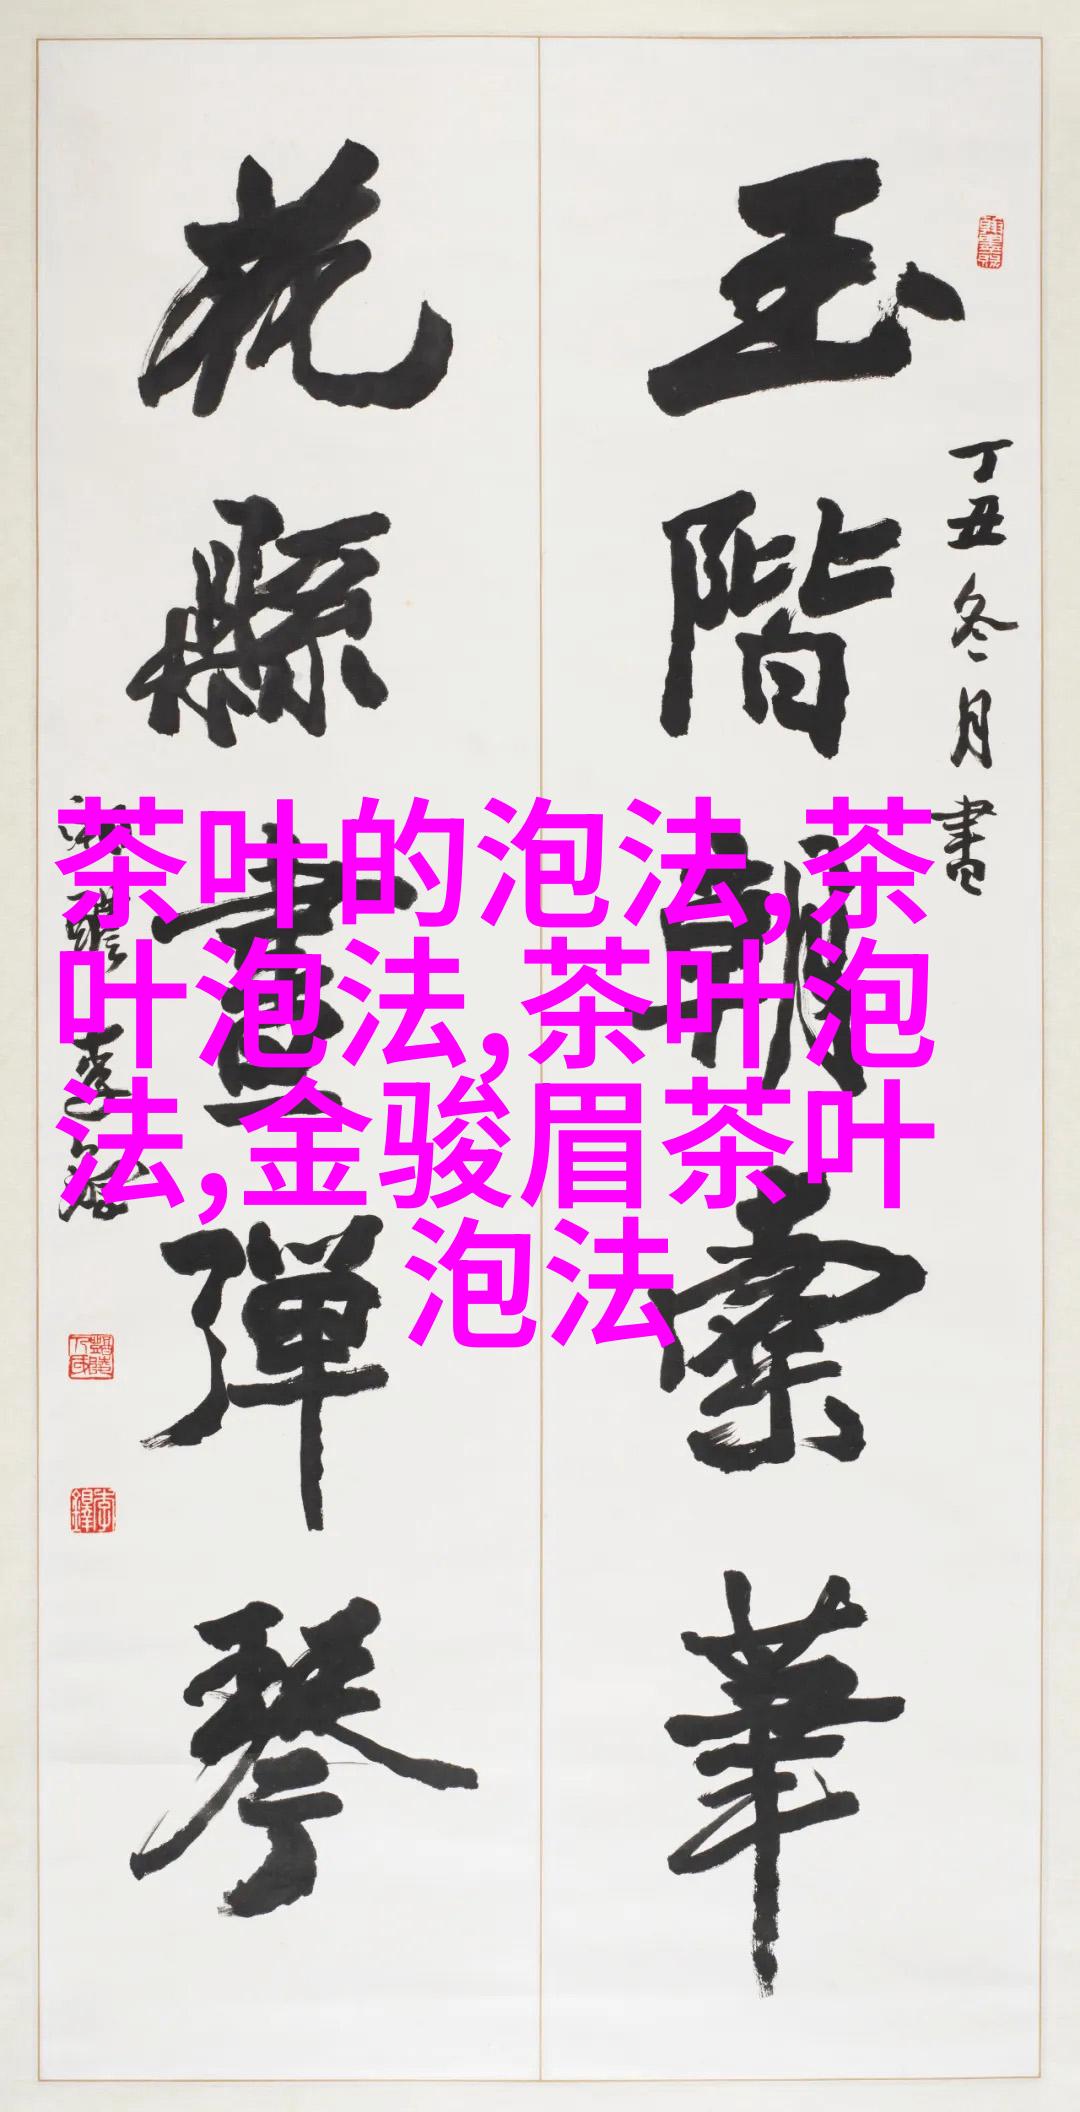 玉階朝紫華
花縣畫彈琴
丁丑冬月書
茶叶的泡法,茶
叶泡法,茶叶泡
法,金骏眉茶叶
泡法